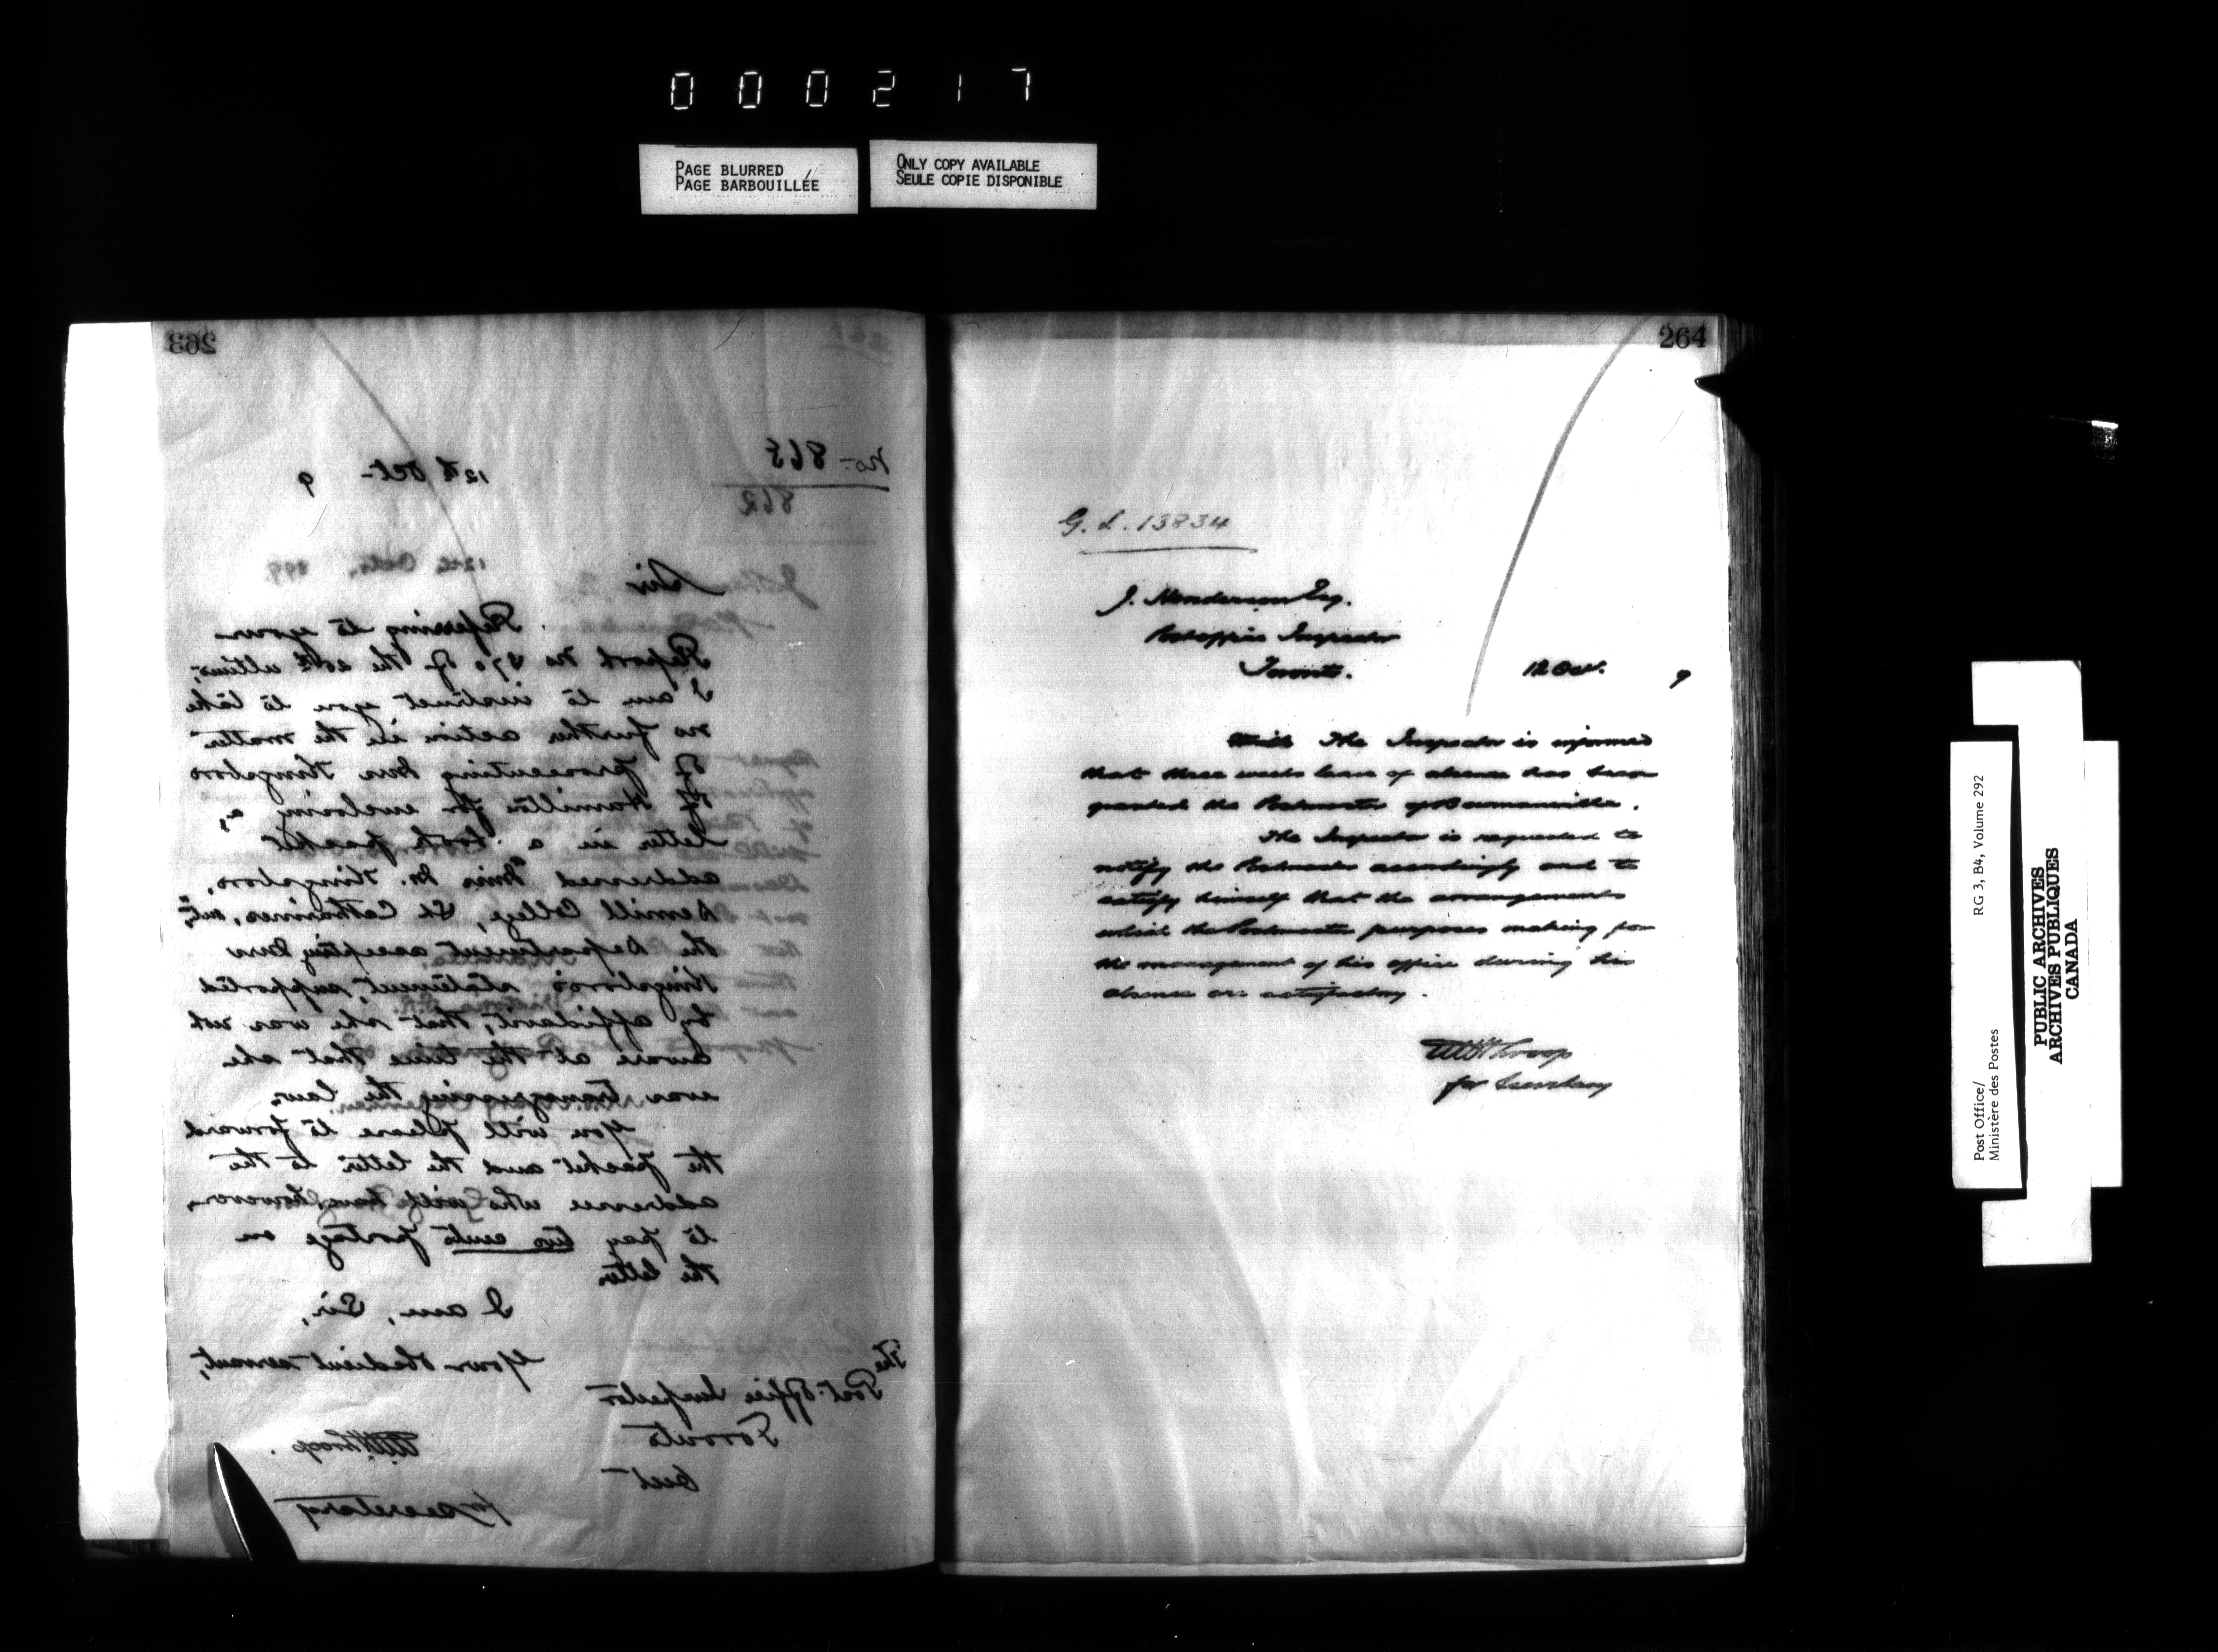 000217
PAGE BLURRED
PAGE BARBOUILLÉE
ONLY COPY AVAILABLE
SEULE COPIE DISPONIBLE
263
No. 865
862
12th Oct- 9
12th Oct, 
Sir
Referring to your
Report No 870 of the 20th ultimo,
I am to instruct you to take
no further action in the matter
of prosecuting Mrs Kingsboro
of Hamilton for enclosing a
letter in a book packet
addressed "Miss M. Kingsboro,
Demill College, St Catharines, Ont",
the Department accepting Mrs
Kingsboro's statement, supported
by affidavit, that she was not
aware at the time that she
was transgressing the law.
You will please to forward
the packet and the letter to the
addressee who will have, however,
to pay two cents postage on
the letter
I am, Sir,
Your obedient servant,
The
Post Office Inspector
Toronto
Ont
for Secretary
264
G. L. 13834
J. Henderson Esq.
Post office Inspector
Toronto. 12 Oct. 9
The Inspector is informed
that three weeks leave of absence has been
granted the Postmaster of Bowmanville.
The Inspector is requested to
notify the Postmaster accordingly and to
satisfy himself that the arrangements
which the Postmaster purposes making for
the management of his office during his
absence are satisfactory.
for Secretary
Post Office/
Ministère des Postes
RG 3, B4, Volume 292
PUBLIC ARCHIVES
ARCHIVES PUBLIQUES
CANADA